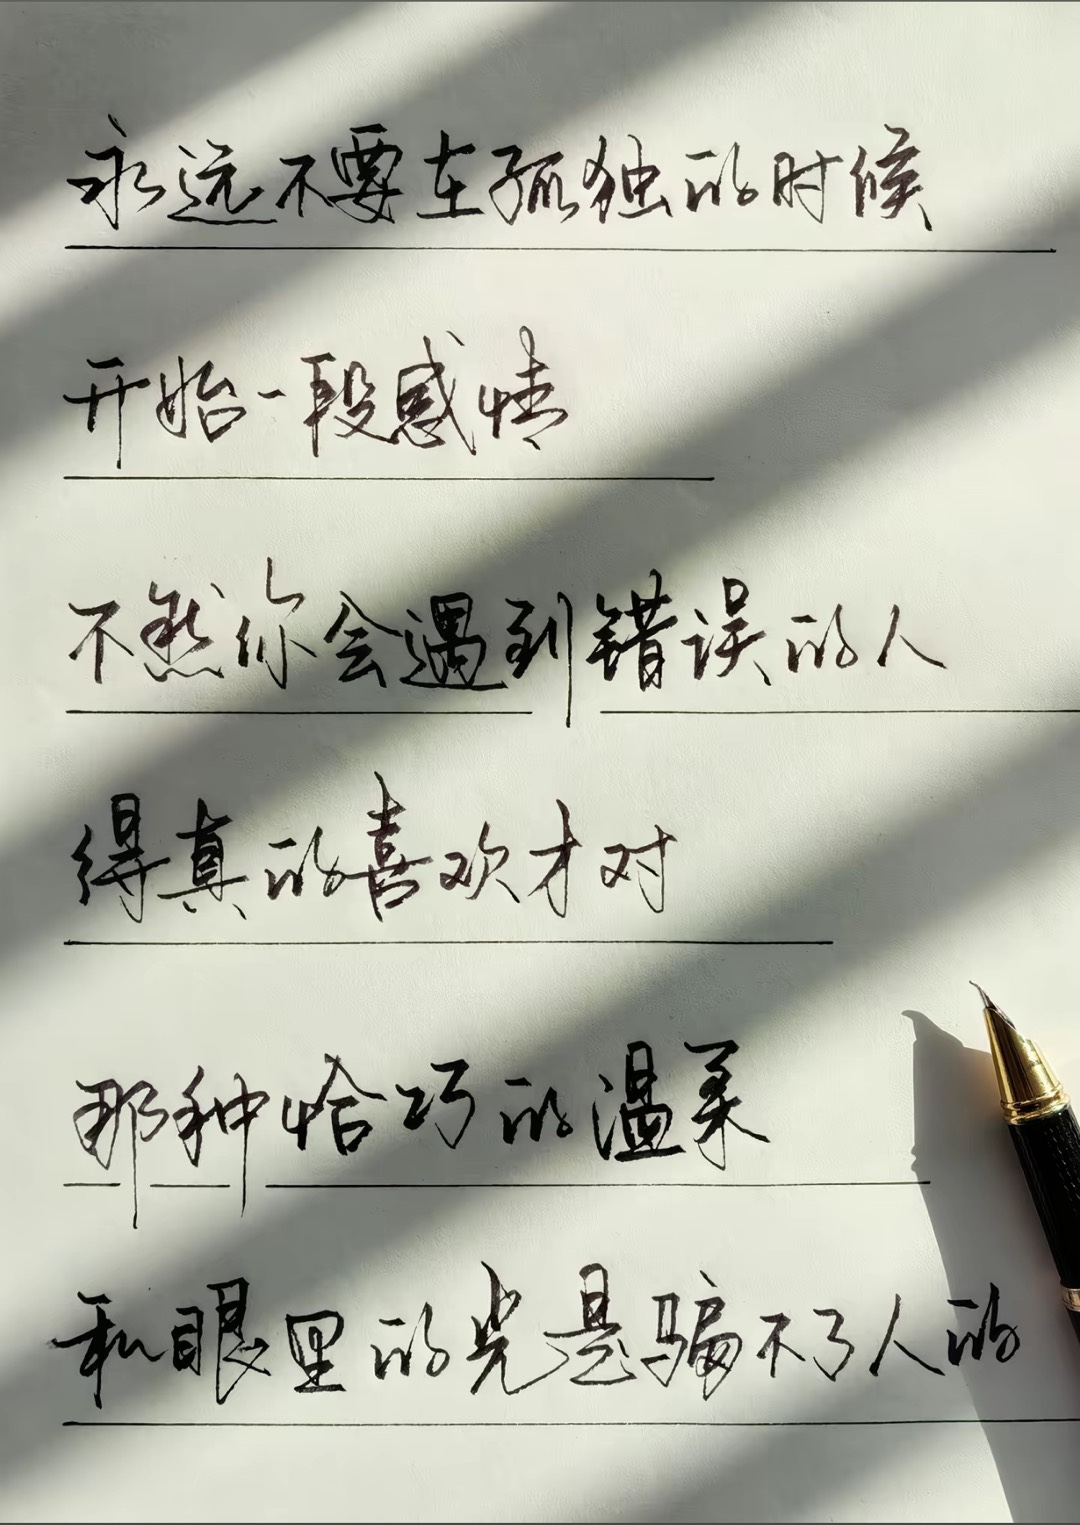 永远不要在孤独的时候
开始一段感情
不然你会遇到错误的人
得真的喜欢才对
那种恰巧的温柔
和眼里的光是骗不了人的